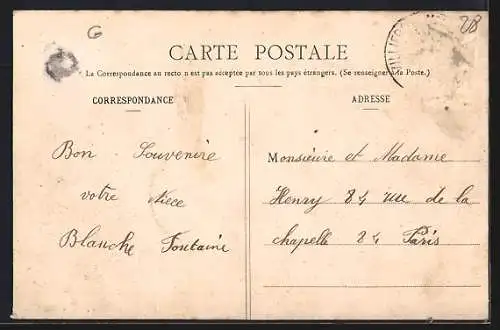 G
28
CARTE POSTALE
La Correspondance au recto n'est pas acceptée par tous les pays étrangers. (Se renseigner à la Poste.)
CORRESPONDANCE
Bon Souvenire
votre Niece
Blanche Fontaine
ADRESSE
Monsieure et Madame
Henry 84 rue de la
chapelle 84 Paris